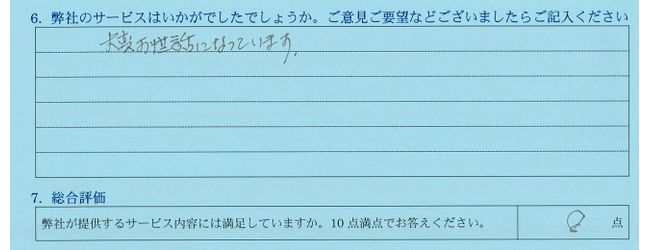 6. 弊社のサービスはいかがでしたでしょうか。ご意見ご要望などございましたらご記入ください
大変お世話になっています。
7. 総合評価
弊社が提供するサービス内容には満足していますか。10点満点でお答えください。 8 点